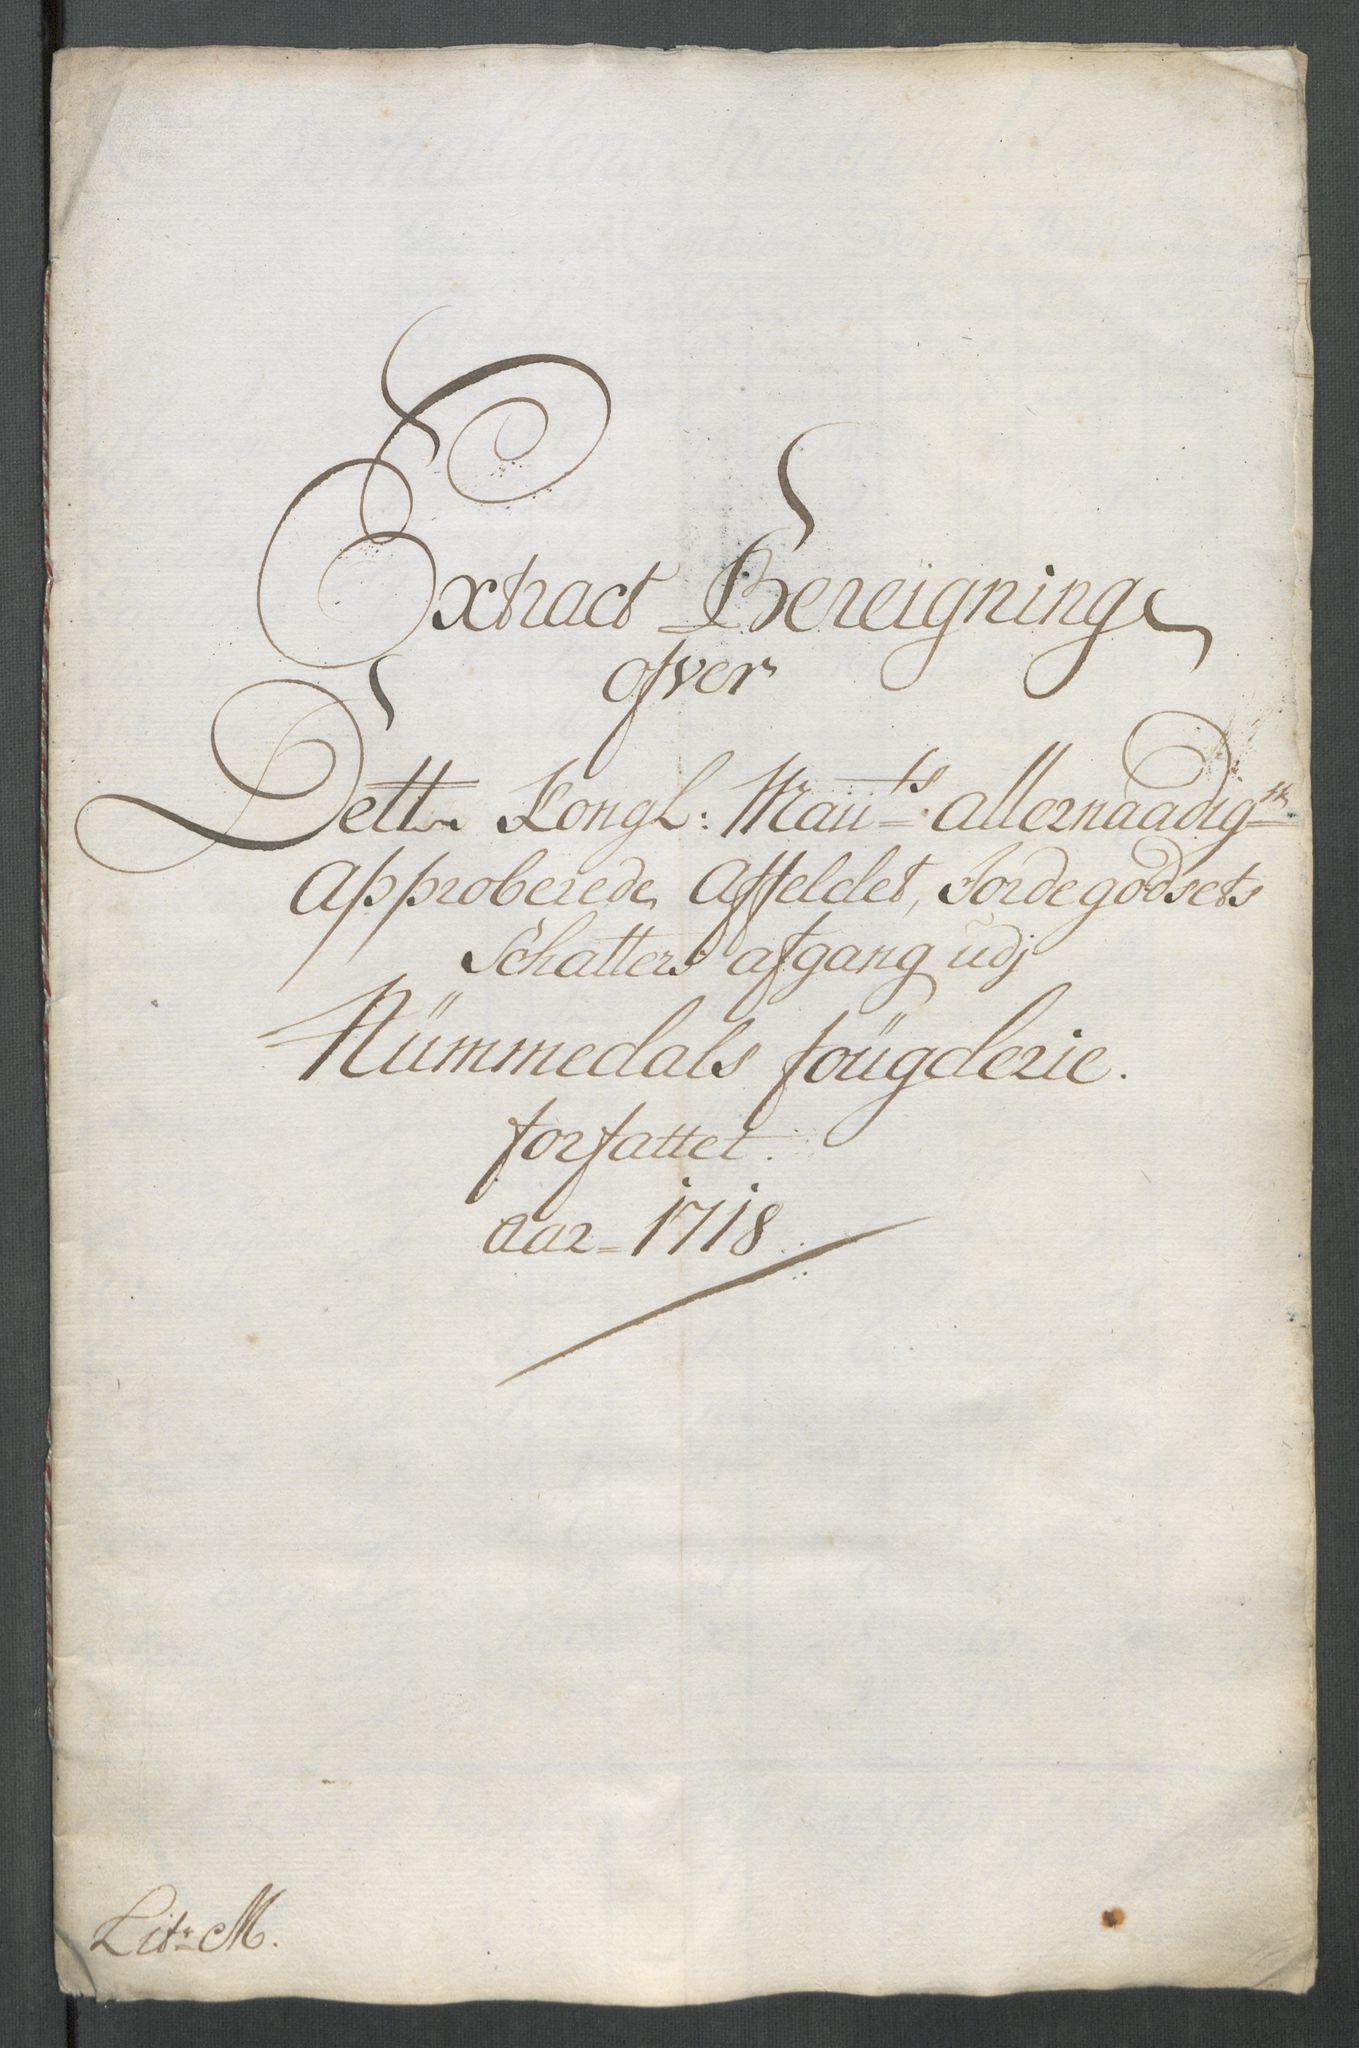 Extract Bereigning
ofver
Dett Kongl: May:ts allernaadigst
Approberede Affeldet, Jordegodsets
Schatters afgang udj
Nümmedals foügderie.
forfattet.
aar= 1718
Litr M.